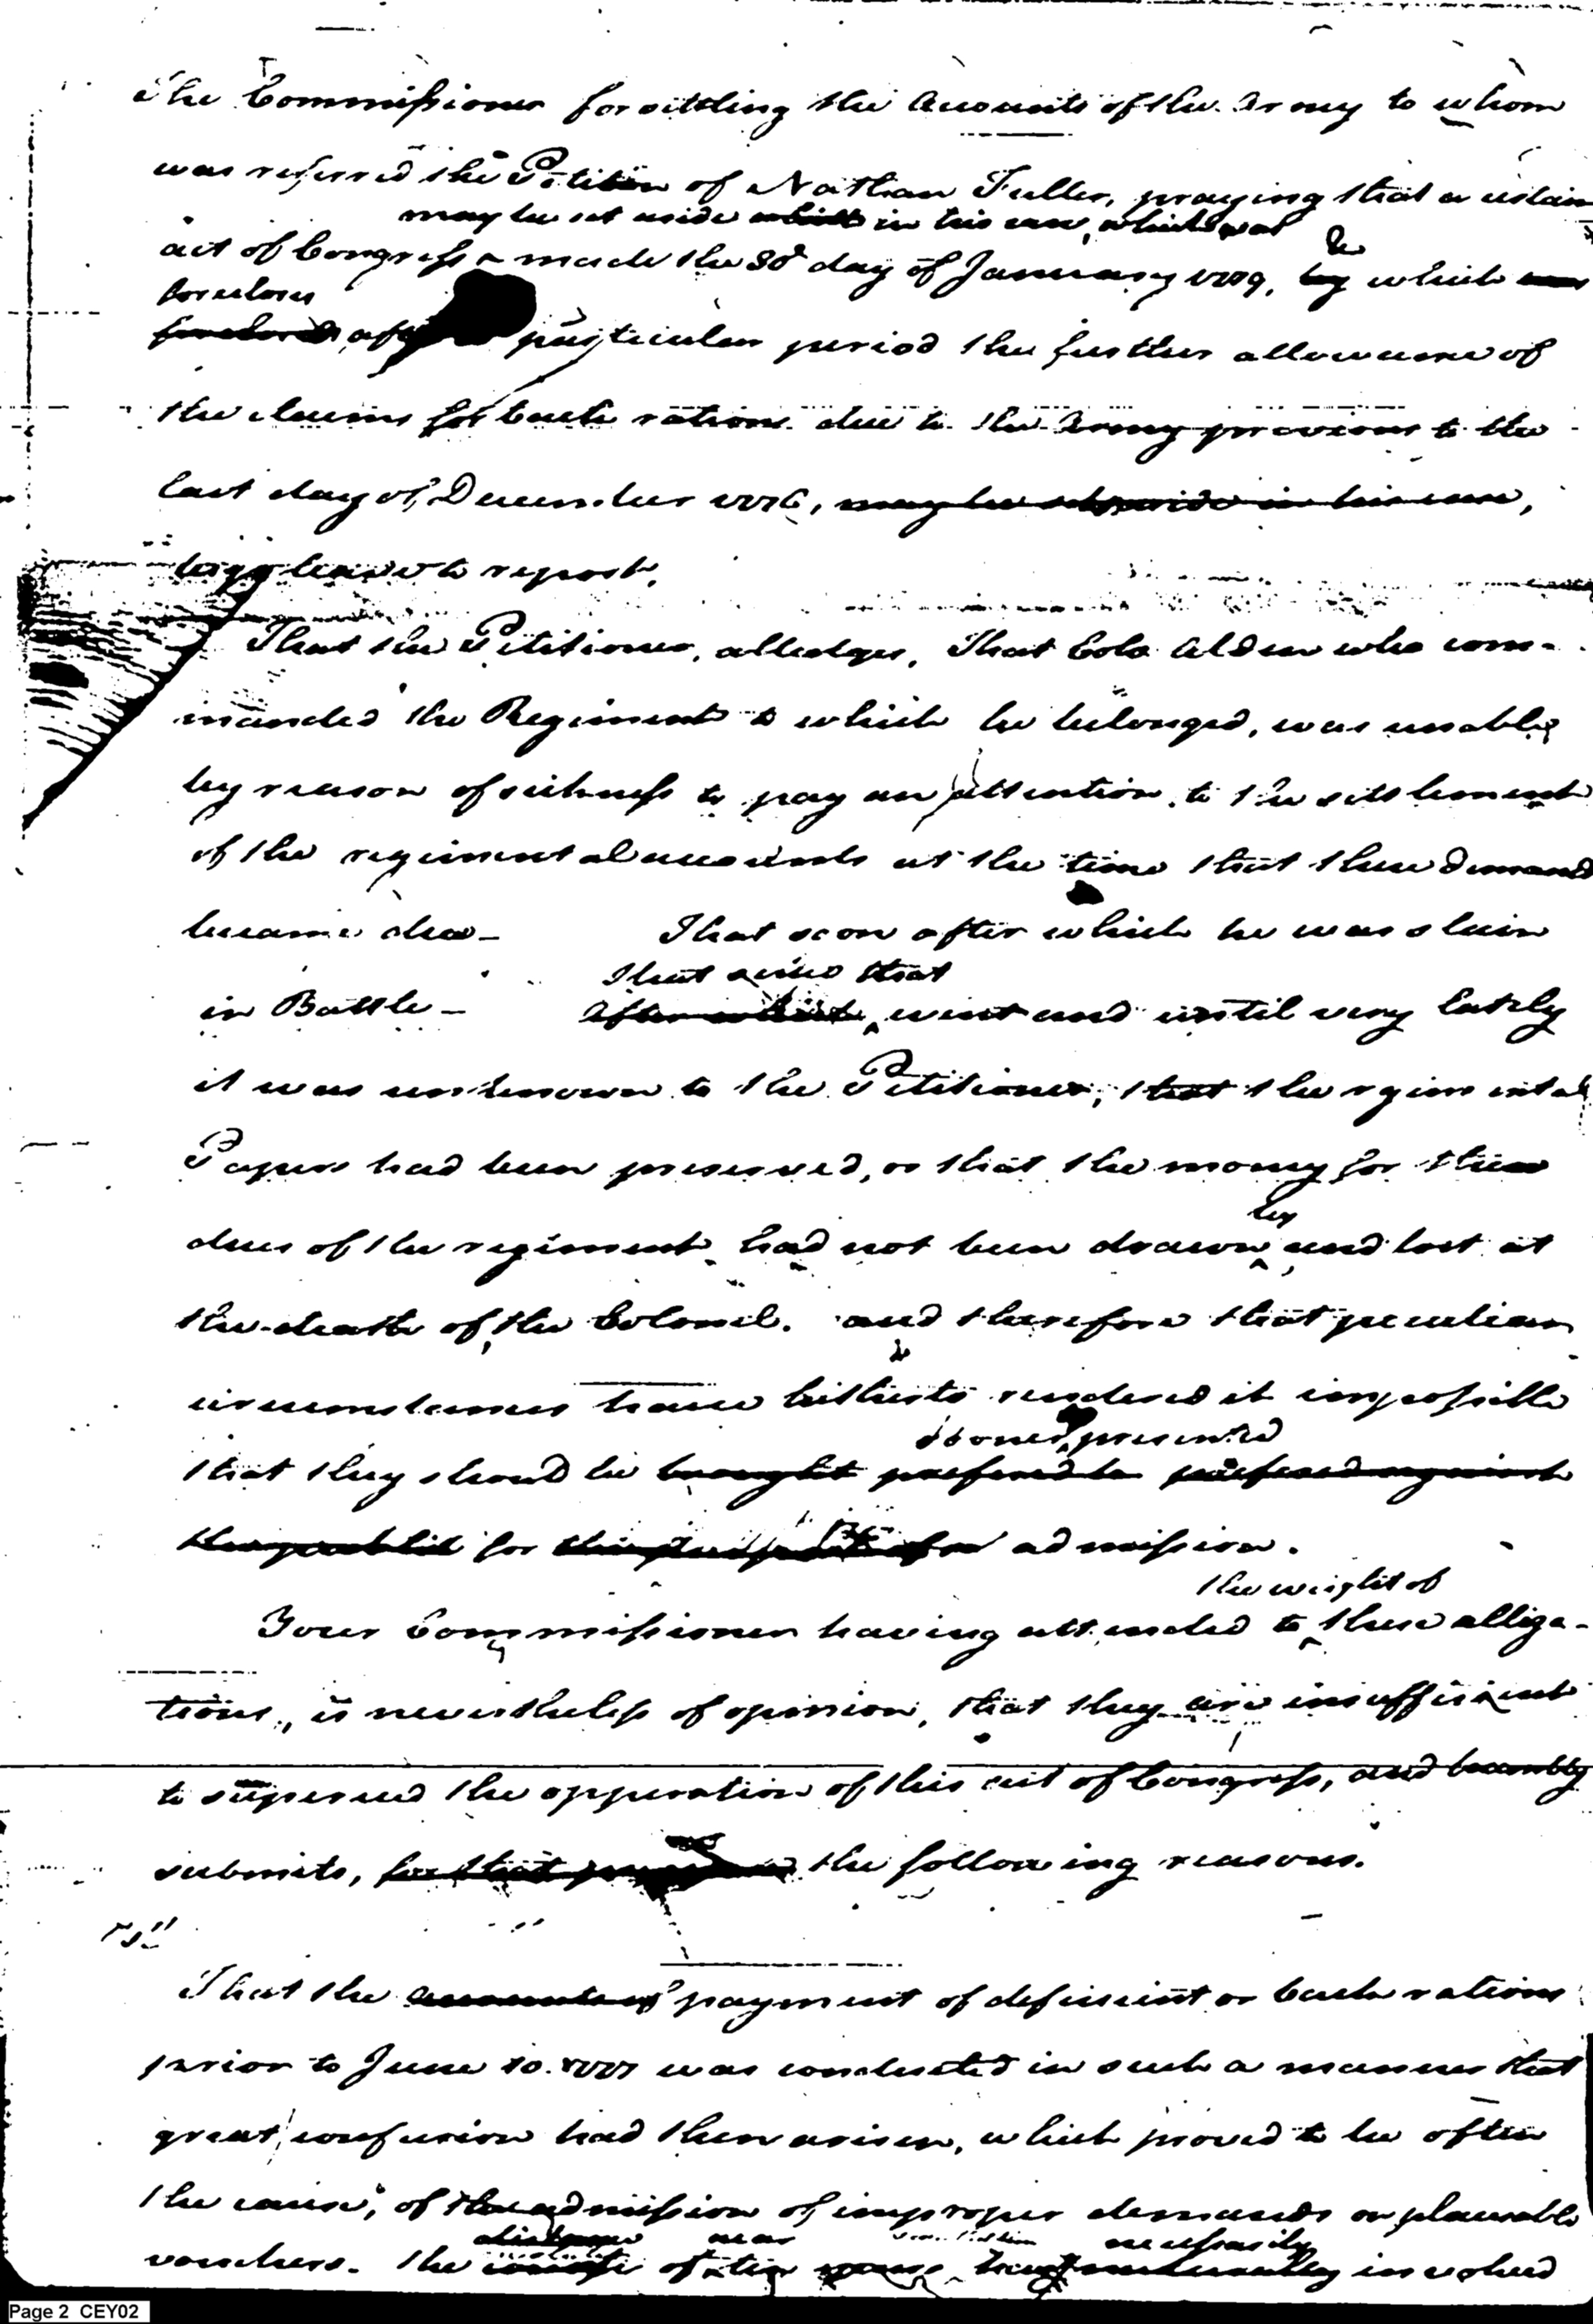 The Commissioner for settling the Accounts of the Army to whom
was referred the Petition of Nathan Fuller, praying that a certain
may be set aside in his case, which was
act of Congress made the 30 day of January 1779, by which
forecloses
after particular period the further allowance of
the claims for back rations due to the Army previous to the
last day of December 1776, may be set aside in his case,
begs leave to report,
That the Petitioner, alledges, That Colo Alden who com-
manded the Regiment to which he belonged, was unable
by reason of sickness to pay an attention to the settlement
of the regimental accounts at the time that these demands
became due - That soon after which he was slain
That since that
in Battle - After which event and until very lately
it was unknown to the Petitioner, that the regimental
Papers had been preserved, or that the money for these
by
dues of the regiment had not been drawn and lost at
the death of the Colonel. and therefore that peculiar
circumstances have hitherto rendered it impossible
sooner presented
that they should be brought prefered to prefered against
the publick for admission.
the weight of
Your Commissioner having attended to these alliga-
tions, is nevertheless of opinion, that they are insufficient
to superceed the opperation of this act of Congress, and humbly
submits, for that the following reasons.
That the accounts of payment of deficient or back rations
prior to June 10. 1777 was conducted in such a manner that
great confusion had then arisen, which proved to be often
the cause, of the admission of improper demands on plausable
near necessarily
vouchers. The of ten involved
Page 2 CEY02